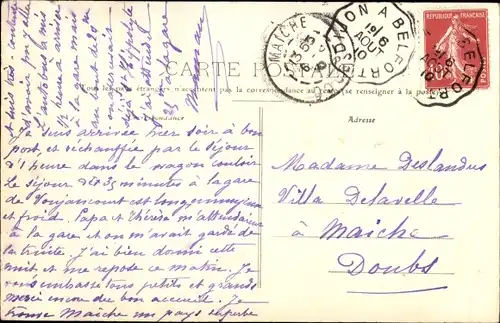 CARTE POSTALE
Tous les pays étrangers n'acceptent pas la correspondance
se renseigner à la poste
Correspondance
Adresse
MAICHE
DIJON A BELFORT
16
AOUT
10
RÉPUBLIQUE FRANÇAISE
10
POSTES
Je suis arrivée hier soir à bon
port, et réchauffée par le séjour
d'1 heure dans le wagon couloir.
Le séjour de 35 minutes à la gare
de Voujaucourt est long,
et froid. Papa et Thérèse m'attendaient
à la gare et on m'avait gardé de
la truite. J'ai bien dormi cette
nuit et me repose ce matin. Je
vous embrasse tous petits et grands
merci encore du bon accueil. Je
trouve Maîche un pays superbe
et suis très contente
d'avoir pu y aller
à la gare
Madame Deslandres
Villa Delavelle
à Maiche
Doubs